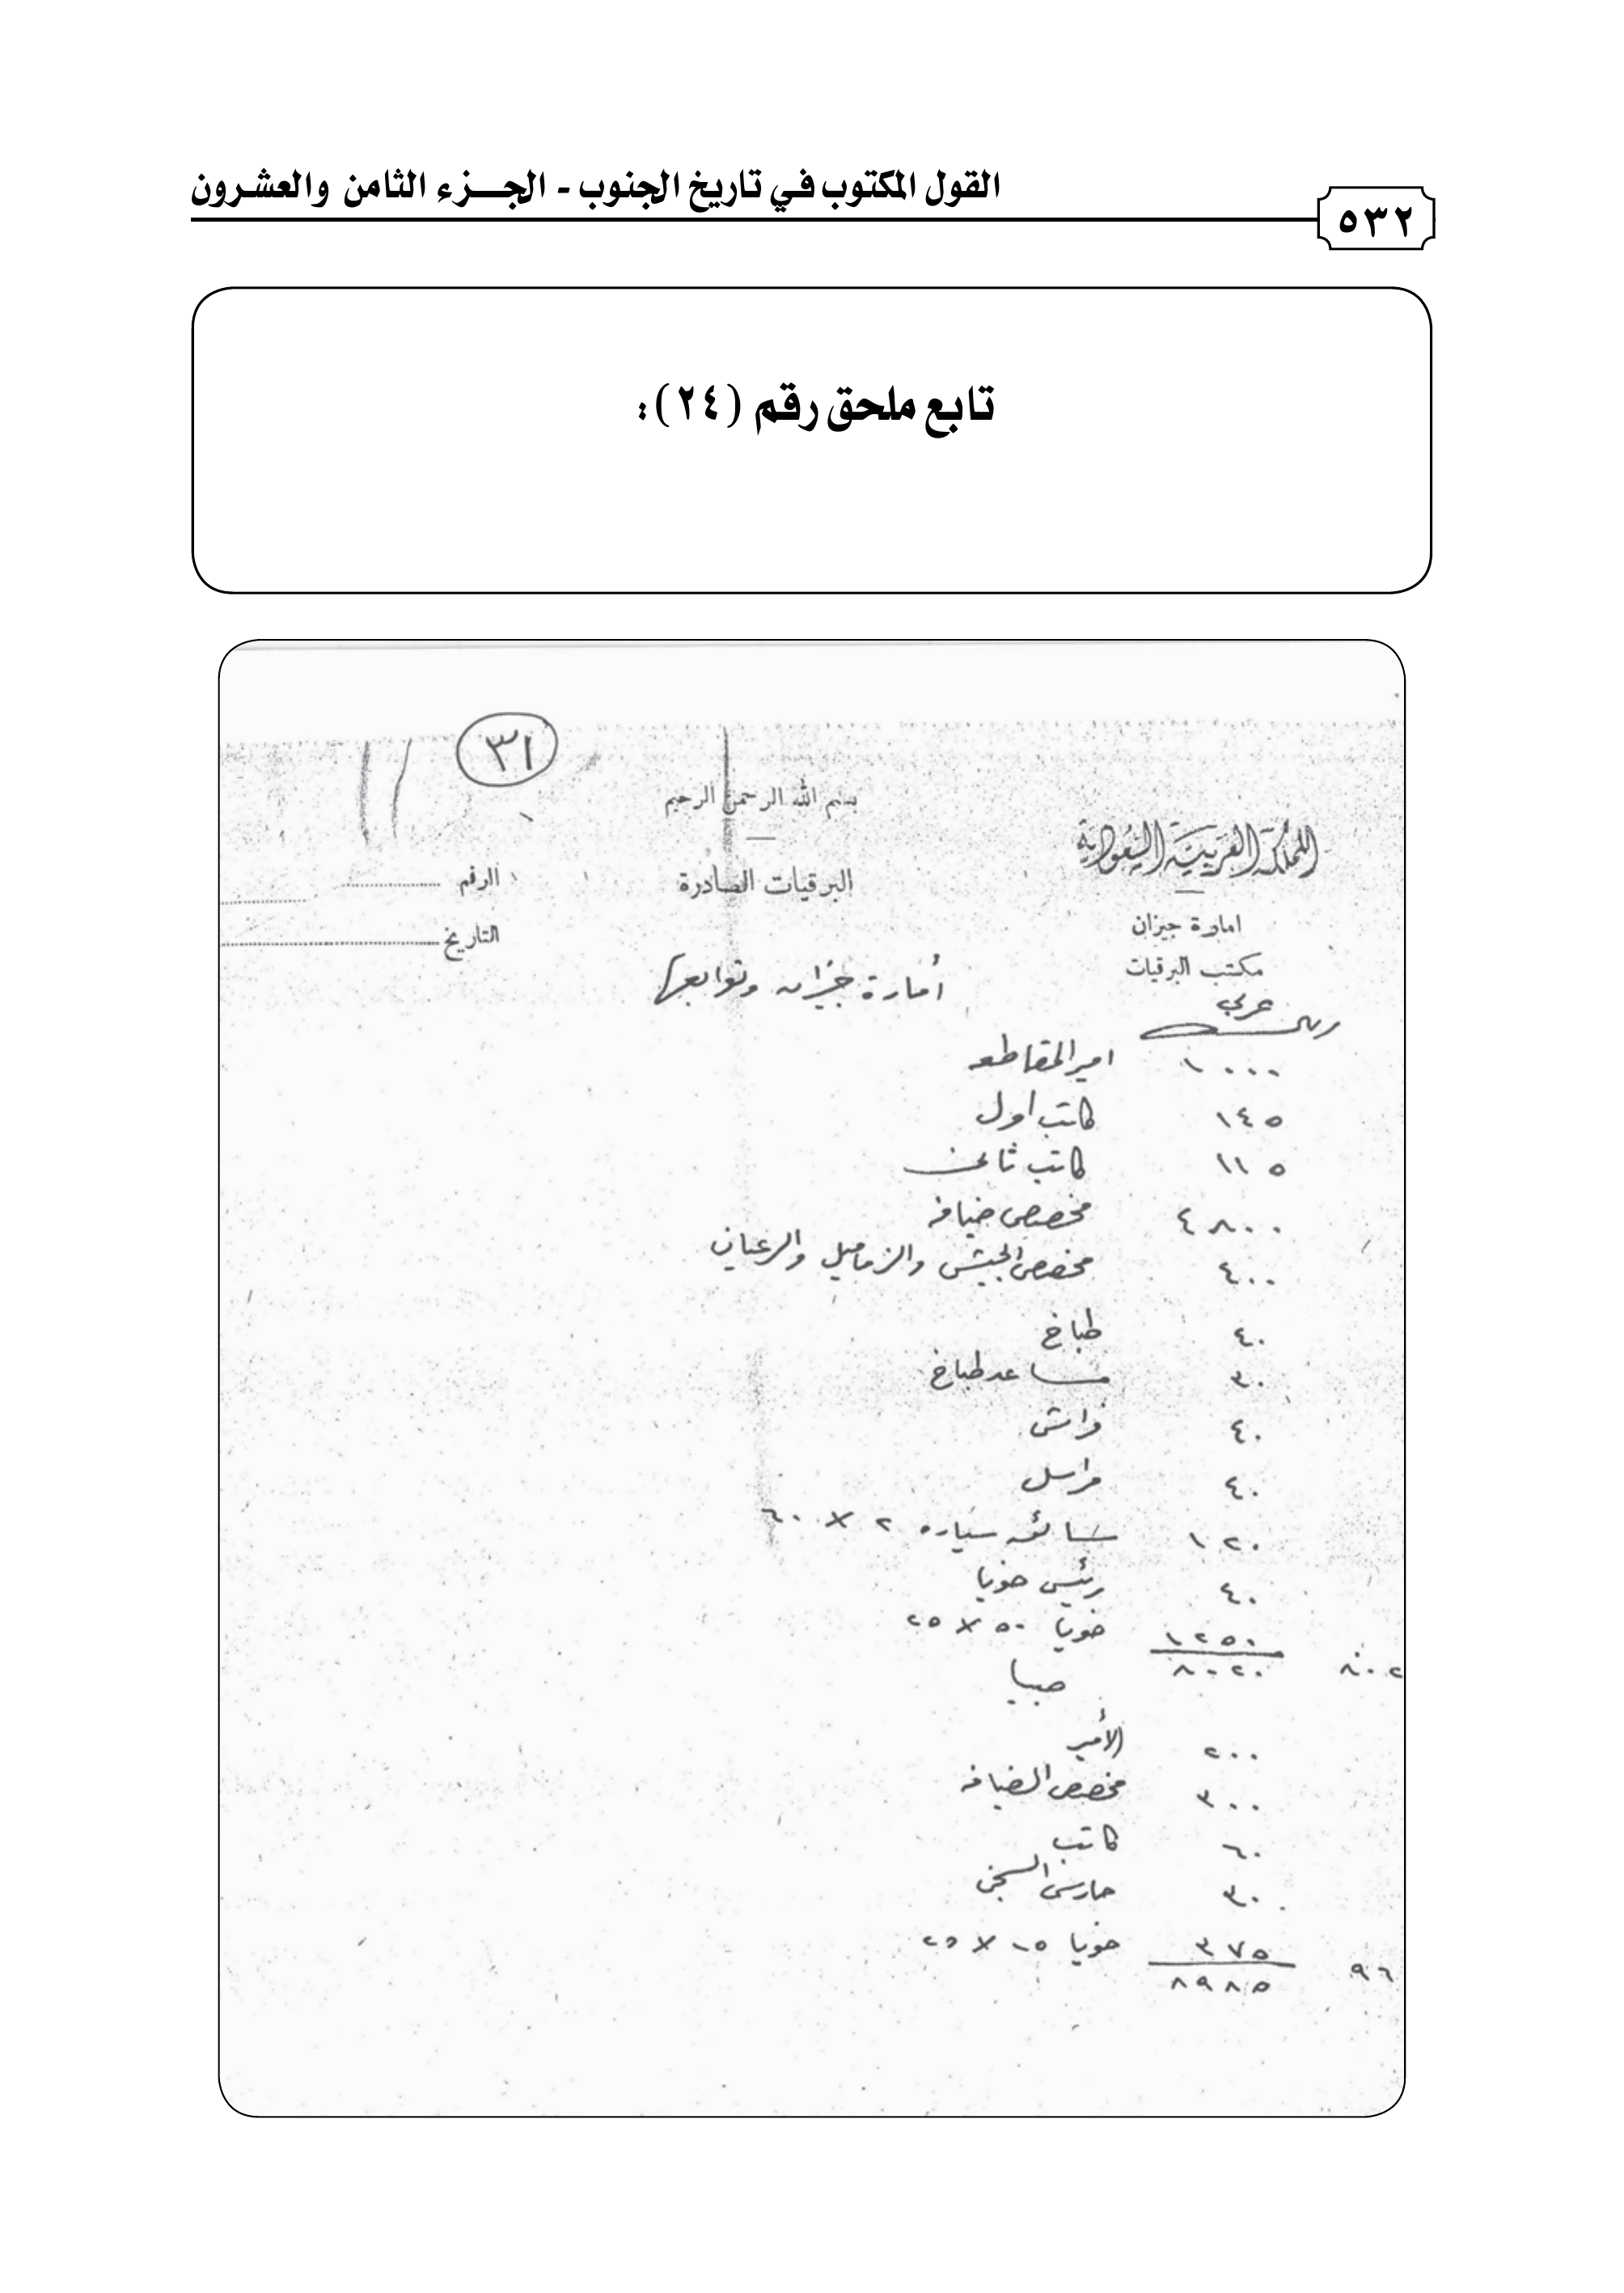 القول المكتوب في تاريخ الجنوب - الجزء الثامن والعشرون
٥٣٢
تابع ملحق رقم (٢٤):
٣١
بسم الله الرحمن الرحيم
المملكة العربية السعودية
البرقيات الصادرة
الرقم
امارة جيزان
التاريخ
مكتب البرقيات
أمارة جيزان وتوابعها
ريال عربي
١٠٠٠ امير المقاطعه
١٤٥ كاتب اول
١١٥ كاتب ثاني
٤٨٠٠ مخصص ضيافه
٤٠٠ مخصص الجيش والزماميل والرعيان
٤٠ طباخ
٣٠ مساعد طباخ
٤٠ فراش
٤٠ مراسل
١٢٠ سائق سياره ٢ × ٦٠
٤٠ رئيس خويا
١٢٥٠ خويا ٥٠ × ٢٥
٨٠٢٠ ٨٠٢
صبيا
٢٠٠ الأمير
٣٠٠ مخصص الضيافه
٦٠ كاتب
٣٠ حارس السجن
٣٧٥ خويا ١٥ × ٢٥
٩٦ ٨٩٨٥